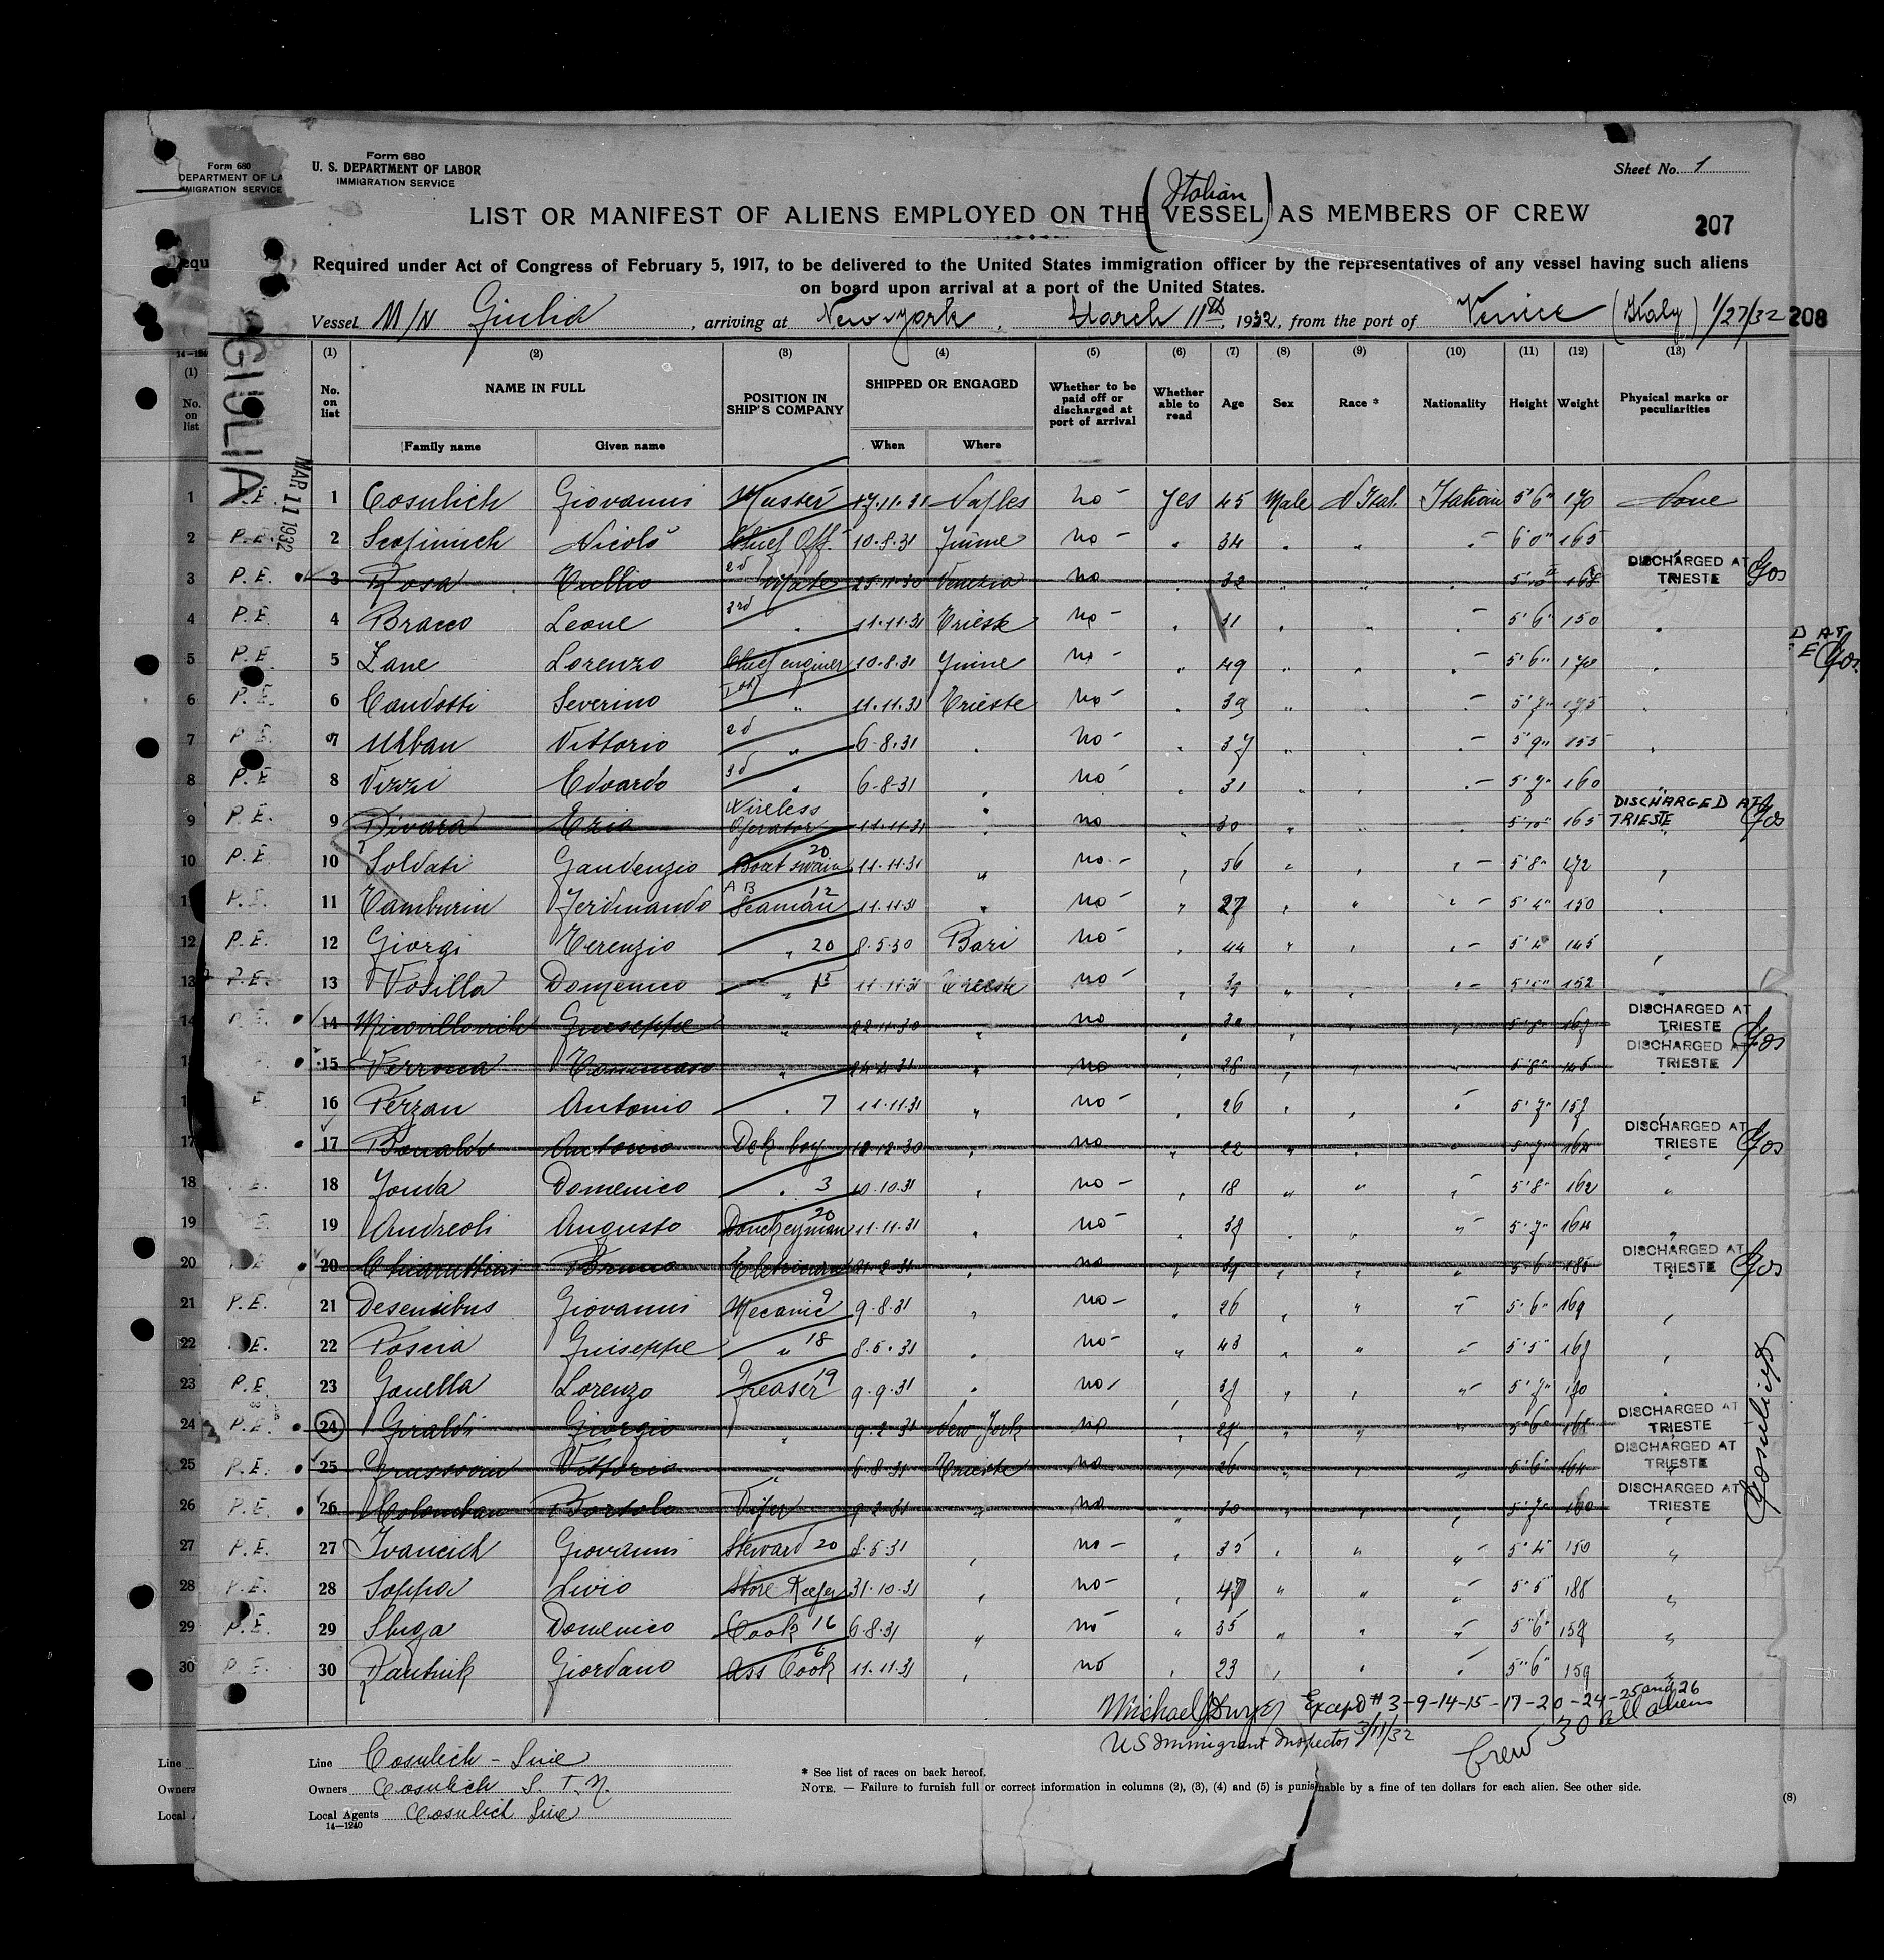 Form 680
DEPARTMENT OF LA
MIGRATION SERVICE
Form 680
U. S. DEPARTMENT OF LABOR
IMMIGRATION SERVICE
Sheet No. 1
(Italian)
LIST OR MANIFEST OF ALIENS EMPLOYED ON THE VESSEL AS MEMBERS OF CREW
207
Required under Act of Congress of February 5, 1917, to be delivered to the United States immigration officer by the representatives of any vessel having such aliens
on board upon arrival at a port of the United States.
Vessel M/N Giulia, arriving at New York, March 11th, 1932, from the port of Venice (Italy) 1/27/32
208
GIULIA
MAR 11 1932
(1) (2) (3) (4) (5) (6) (7) (8) (9) (10) (11) (12) (13)
No. on list NAME IN FULL Family name Given name POSITION IN SHIP'S COMPANY SHIPPED OR ENGAGED When Where Whether to be paid off or discharged at port of arrival Whether able to read Age Sex Race * Nationality Height Weight Physical marks or peculiarities
1 Cosulich Giovanni Master 17.11.31 Naples no - yes 45 Male N Ital. Italian 5'6" 170 None
P.E. 2 Scopinich Nicolò Chief Off. 10.8.31 Fiume no - " 34 " " " 6'0" 165
P.E. 3 Rosa Tullio 2d Mate 25.11.30 Venezia no " 32 " " " 5'10" 168 DISCHARGED AT TRIESTE Cos
P.E. 4 Bracco Leone 3rd " 11.11.31 Trieste no - " 31 " " " 5'6" 150
P.E. 5 Zane Lorenzo Chief enginer 10.8.31 Fiume no - " 49 " " " 5'6" 170
P.E. 6 Candotti Severino 1st " 11.11.31 Trieste no - " 39 " " " 5'7" 175
P.E. 7 Urban Vittorio 2d " 6.8.31 " no - " 37 " " " 5'9" 155
P.E. 8 Vizzi Edoardo 3d " 6-8-31 " no - " 31 " " " 5'7" 160
P.E. 9 Divara Ezio Wireless Operator 11.11.31 " no " 30 " " " 5'10" 165 DISCHARGED AT TRIESTE Cos
P.E. 10 Soldati Gaudenzio Boat swain 20 11.11.31 " no - " 56 " " " 5'8" 172
P.E. 11 Tamburin Ferdinando A B Seaman 12 11.11.31 " no - " 27 " " " 5'4" 150
P.E. 12 Giorgi Terenzio " 20 8.5.30 Bari no - " 44 " " " 5'4" 145
P.E. 13 Vosilla Domenico " 15 11.11.31 Trieste no - " 39 " " " 5'5" 152
P.E. 14 Micovillovich Giuseppe " 22.11.30 " no " 30 " " " 5'8" 167 DISCHARGED AT TRIESTE Cos
15 Verrona Tommaso " 24.4.31 " no " 28 " " " 5'8" 145 DISCHARGED AT TRIESTE
16 Perzan Antonio " 7 11.11.31 " no - " 26 " " " 5'7" 157
17 Bonaldo Antonio Dek boy 10.12.30 " no " 22 " " " 5'7" 164 DISCHARGED AT TRIESTE Cos
18 Fonda Domenico " 3 10.10.31 " no - " 18 " " " 5'8" 162
19 Andreoli Augusto Donckeyman 20 11.11.31 " no - " 37 " " " 5'7" 164
20 Chiaruttini Bruno Eletricien 21.2.31 " no " 39 " " " 5'6" 185 DISCHARGED AT TRIESTE Cos
P.E. 21 Desensibus Giovanni Mecanic 9 9.8.31 " no - " 26 " " " 5'6" 169
22 Poscia Guiseppe " 18 8.5.31 " no - " 43 " " " 5'5" 167
P.E. 23 Gonella Lorenzo Greaser 19 9.9.31 " no - " 37 " " " 5'7" 170
P.E. 24 Giraldi Giorgio " 9.2.31 New York no " 27 " " " 5'6" 168 DISCHARGED AT TRIESTE
P.E. 25 Vittorio " 6.8.31 Trieste no " 26 " " " 5'6" 164 DISCHARGED AT TRIESTE
P.E. 26 Colomban Bortolo Viper 9.2.31 " no " 30 " " " 5'7" 160 DISCHARGED AT TRIESTE
P.E. 27 Ivancich Giovanni Steward 20 8.5.31 " no - " 35 " " " 5'4" 150
P.E. 28 Soppa Livio Store Keeper 31.10.31 " no - " 47 " " " 5'5 188
P.E. 29 Sluga Domenico Cook 16 6.8.31 " no " 35 " " " 5'6" 157
P.E. 30 Rautnik Giordano Ass Cook 6 11.11.31 " no " 23 " " " 5'6" 159
Cosulich
Michael J Dwyer Except # 3-9-14-15-17-20-24-25 and 26
US Immigrant Inspector 3/11/32 Crew 30 all aliens
Line Cosulich - Line
Owners Cosulich S. T. N.
Local Agents Cosulich Line
14—1240
* See list of races on back hereof.
NOTE. — Failure to furnish full or correct information in columns (2), (3), (4) and (5) is punishable by a fine of ten dollars for each alien. See other side.
(8)